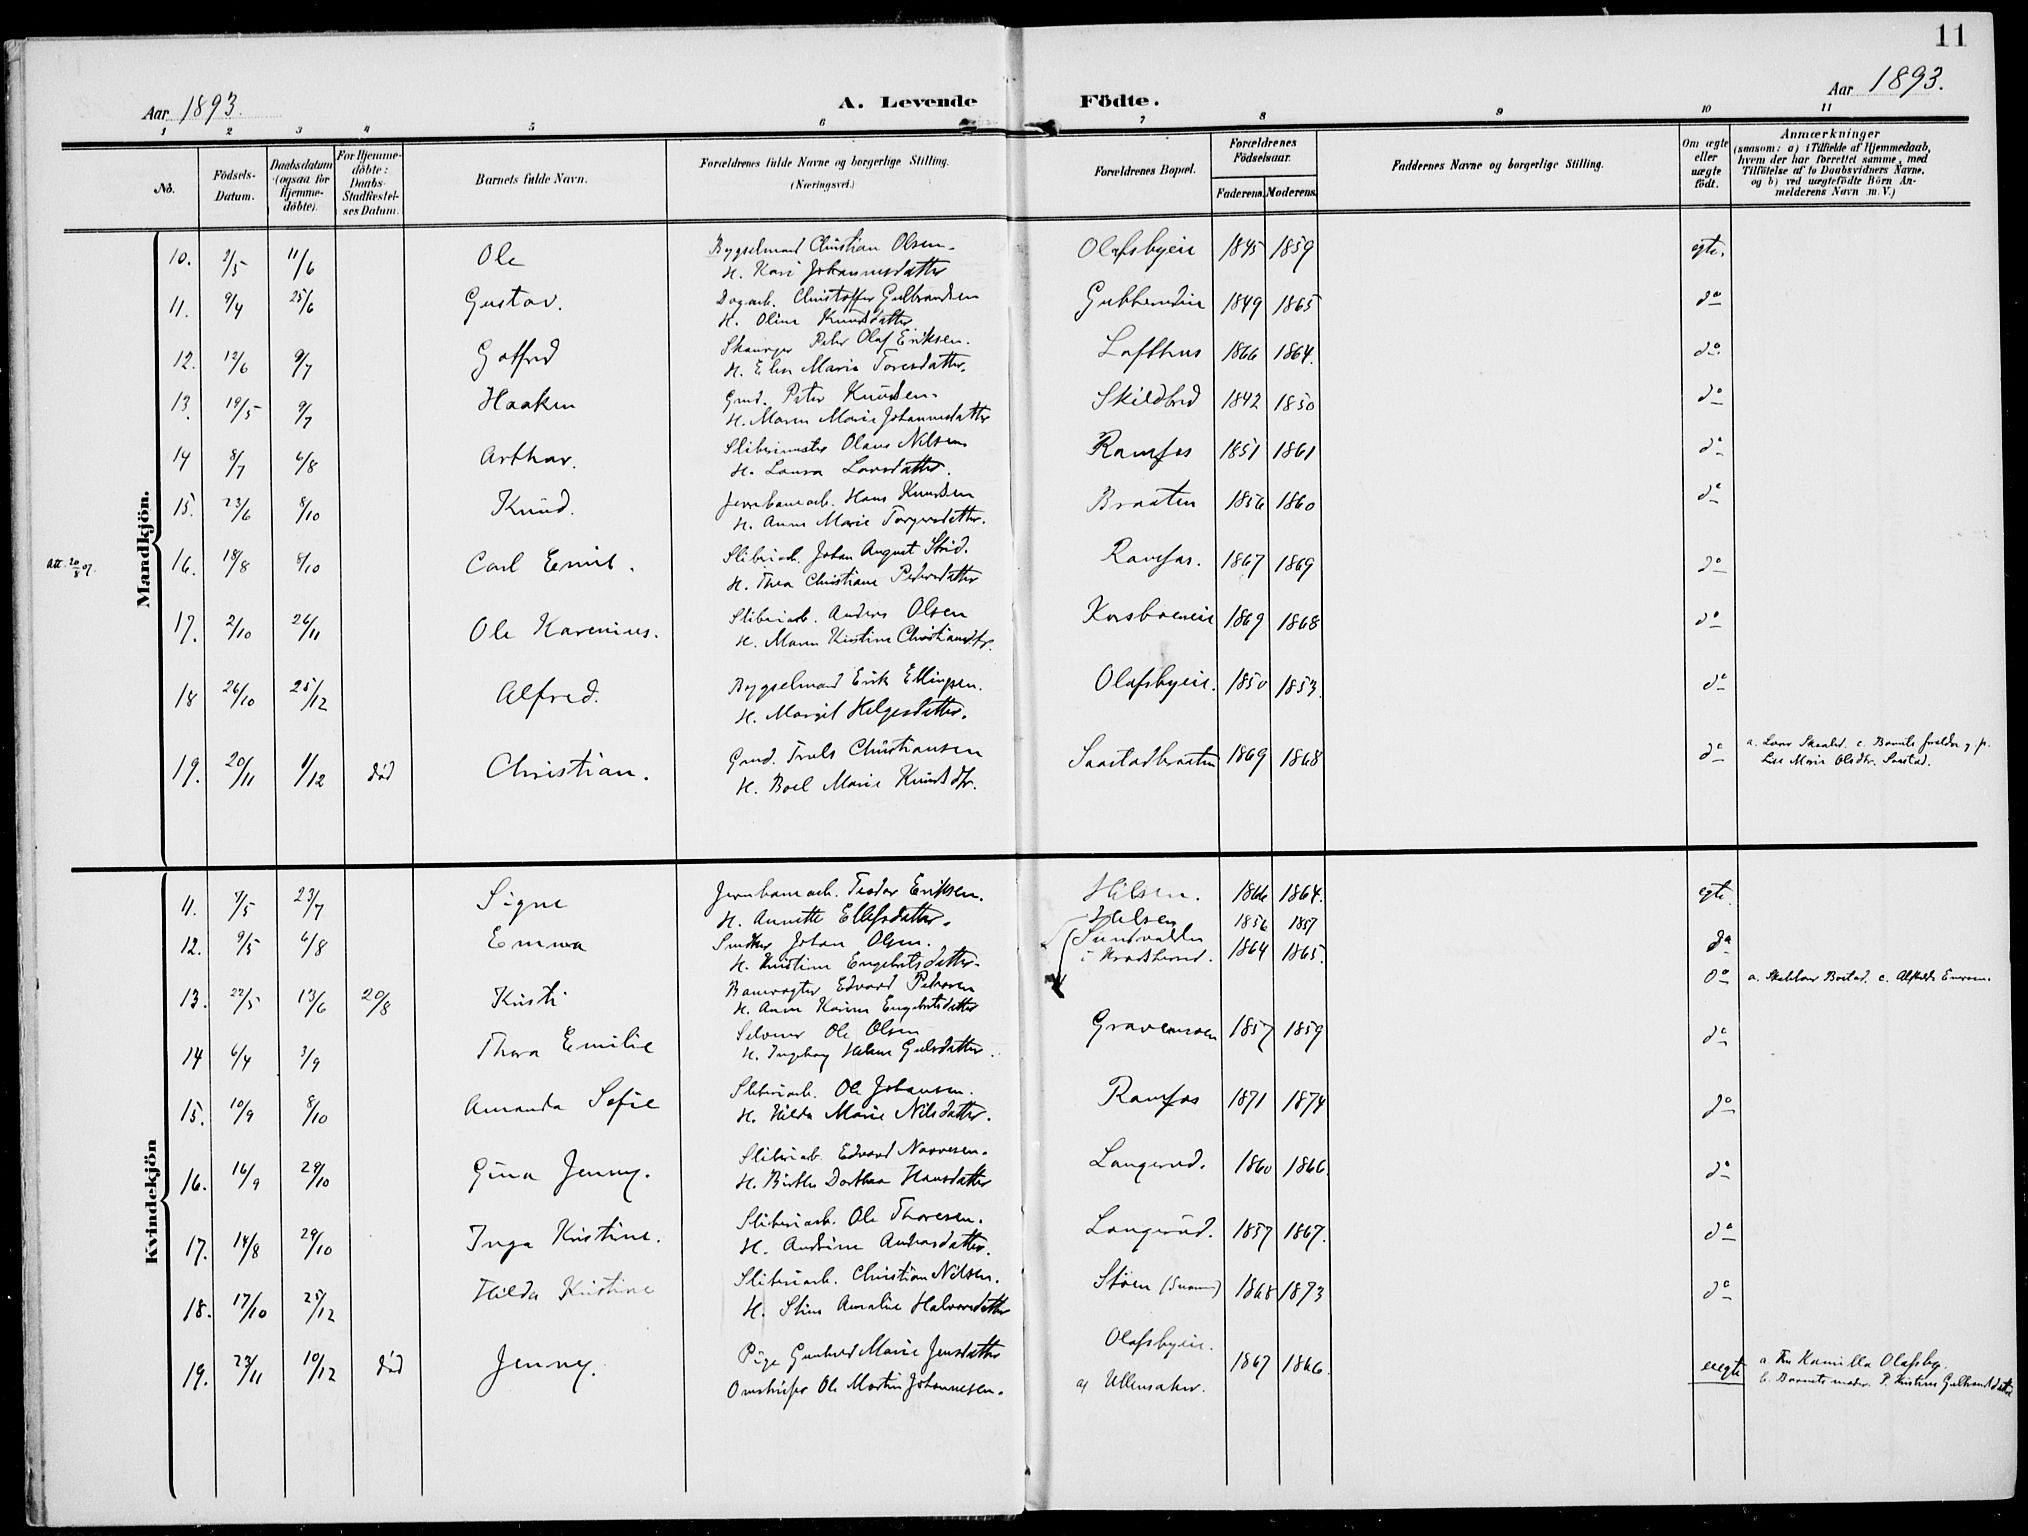 11
Aar 1893.
A. Levende Födte.
Aar 1893.
1 2 3 4 5 6 7 8 9 10 11
No.
Födsels-Datum.
Daabsdatum (ogsaa for Hjemme-döbte).
For Hjemme-döbte: Daabs-Stadfæstel-ses Datum.
Barnets fulde Navn.
Forældrenes fulde Navne og borgerlige Stilling. (Næringsvei.)
Forældrenes Bopæl.
Forældrenes Födselsaar.
Faderens. Moderens.
Faddernes Navne og borgerlige Stilling.
Om ægte eller uægte födt.
Anmærkninger
(saasom: a) i Tilfælde af Hjemmedaab,
hvem der har forrettet samme, med
Tilföielse af to Daabsvidners Navne,
og b) ved uægtefödte Börn An-
melderens Navn m. V.)
Mandkjön.
10. 2/5 11/6 Ole Bygselmand Christian Olsen. Olafsbyeie 1845 1859 egte.
H. Kari Johannesdatter
11. 9/4 25/6 Gustav. Dagarb. Christoffer Gulbrandsen 1849 1865 do
H. Oline Knudsdatter
12. 12/6 9/7 Gotfred Peter Olaf Eriksen. Lofthus 1866 1864. do
H. Elen Marie Toresdatter.
13. 19/5 9/7 Haaken Grmd. Peter Knudsen. Skildbred 1842 1850 do
H. Maren Marie Johannesdatter
14 8/7 6/8 Arthur. Slibermester Olaus Nilsen Ramfos 1851 1861 do
H. Laura Larsdatter.
15. 23/6 8/10 Knud. Jernbanearb. Hans Knudsen Braaten 1856 1860 do
H. Anne Marie Torgersdatter.
att. 20/8 07.
16. 18/8 8/10 Carl Emil. Sliberiarb. Johan August Strid. Ramfos. 1867 1869 do
H. Thea Christiane Pedersdatter
17. 2/10 26/11 Ole Karenius. Sliberiarb. Anders Olsen 1869 1868 do
H. Maren Kristine Christiansdtr.
18 26/10 25/12 Alfred. Bygselmand Erik Ellingsen. Olafsbyeie. 1850 1853. do
H. Margit Helgesdatter.
19. 20/11 1/12 död Christian. Grmd. Truls Christiansen Saastadbraaten 1869 1868 do a. Lars c. Barnets forældre
H. Boel Marie Knudsdtr. Marie Olsdtr. Saastad.
Kvindekjön
11. 7/5 23/7 Signe Jernbanearb. Teodor Eriksen. Hilsen. 1866 1864. egte.
H. Annette Ellefsdatter. Hilsen 1856 1857
12. 9/5 6/8 Emma Johan Olsen. Sundvolden 1864 1865. do
H. Kristine Engebretsdatter. i Kradsherred.
13. 22/5 13/6 20/8 Kristi Banevogter Edvard Petersen do a. c.
H. Anne Karine Engebretsdatter
14 6/4 3/9 Thora Emilie Selveier Ole Olsen 1857 1859 do
H. Ingeborg Helene Gulsdatter.
15. 10/9 8/10 Amanda Sofie Sliberiarb. Ole Johansen. Ramfos 1871 1874 do
H. Hilda Marie Nilsdatter.
16. 16/9 29/10 Gina Jenny. Sliberiarb. Edvard Narvesen. Langerud. 1860 1866. do
H. Birthe Dorthea Hansdatter
17. 14/8 29/10 Inga Kristine. Sliberiarb. Ole Thoresen. Langerud. 1857 1867. do
H. Andrine Andersdatter.
18. 17/10 25/12 Hilda Kristine Sliberiarb. Christian Nilsen. Støen 1868 1873 do
H. Stine Amalie Halvorsdatter
19. 23/11 10/12 död Jenny. Pige Gunhild Marie Jensdatter Olafsbyeie. 1867 1866. uegte a. Kamilla Olafsby.
Ole Martin Johannesen. af Ullensaker. b. Barnets moder.